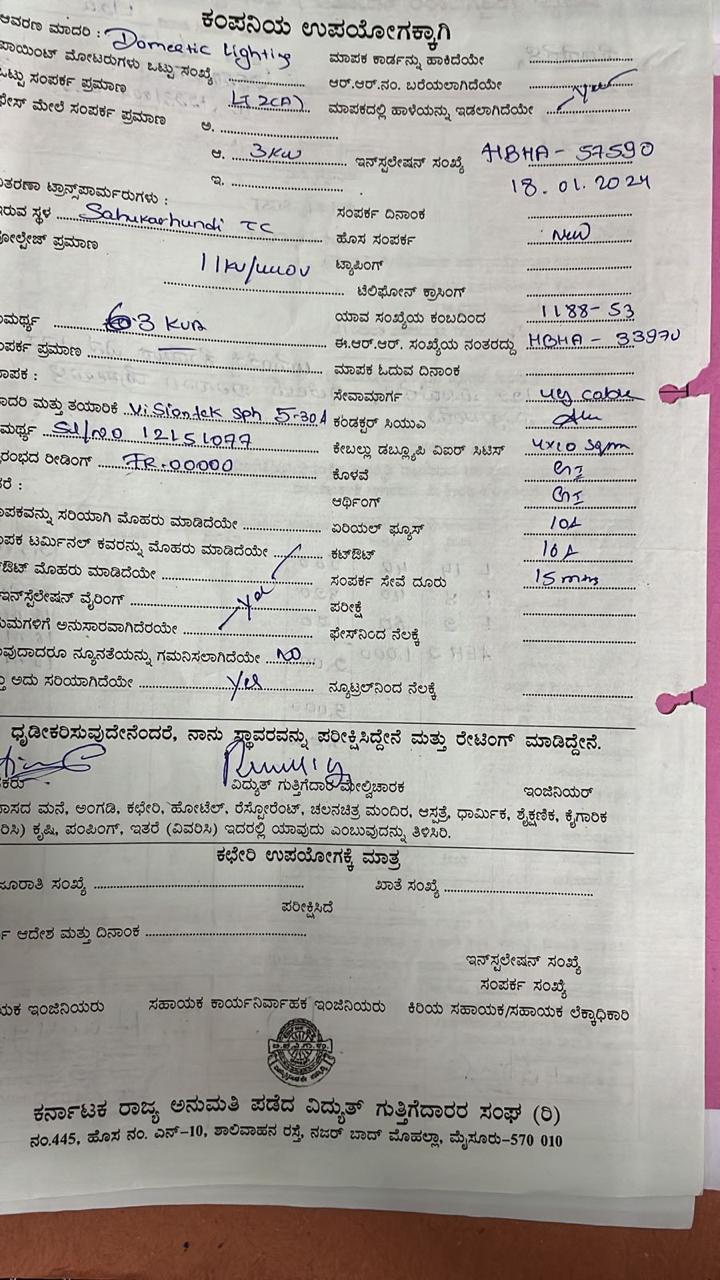 ಕಂಪನಿಯ ಉಪಯೋಗಕ್ಕಾಗಿ
ಆವರಣ ಮಾದರಿ : Domestic Lighting ಮಾಪಕ ಕಾರ್ಡನ್ನು ಹಾಕಿದೆಯೇ
ಪಾಯಿಂಟ್ ಮೋಟರುಗಳು ಒಟ್ಟು ಸಂಖ್ಯೆ ಆರ್.ಆರ್.ನಂ. ಬರೆಯಲಾಗಿದೆಯೇ
ಒಟ್ಟು ಸಂಪರ್ಕ ಪ್ರಮಾಣ LT2(A) ಮಾಪಕದಲ್ಲಿ ಹಾಳೆಯನ್ನು ಇಡಲಾಗಿದೆಯೇ yes
ಫೇಸ್ ಮೇಲೆ ಸಂಪರ್ಕ ಪ್ರಮಾಣ ಅ.
ಆ. 3KW ಇನ್‌ಸ್ಪಲೇಷನ್ ಸಂಖ್ಯೆ HBHA - 57590
ಇ. 18.01.2024
ತರಣಾ ಟ್ರಾನ್ಸ್‌ಪಾರ್ಮರುಗಳು :
ಇರುವ ಸ್ಥಳ Sahukarhundi TC ಸಂಪರ್ಕ ದಿನಾಂಕ
ವೋಲ್ಟೇಜ್ ಪ್ರಮಾಣ ಹೊಸ ಸಂಪರ್ಕ New
11KV/ ಟ್ಯಾಪಿಂಗ್
ಟೆಲಿಫೋನ್ ಕ್ರಾಸಿಂಗ್
ಮರ್ಥ್ಯ 63 KVA ಯಾವ ಸಂಖ್ಯೆಯ ಕಂಬದಿಂದ 1188-53
ಪರ್ಕ ಪ್ರಮಾಣ ಈ.ಆರ್.ಆರ್. ಸಂಖ್ಯೆಯ ನಂತರದ್ದು HBHA - 33970
ಮಾಪಕ : ಮಾಪಕ ಓದುವ ದಿನಾಂಕ
ಮಾದರಿ ಮತ್ತು ತಯಾರಿಕೆ Visiontek Sph 5-30A ಸೇವಾಮಾರ್ಗ ug cable
ಮರ್ಥ್ಯ Sl/no 12151077 ಕಂಡಕ್ಟರ್ ಸಿಯುಎ Alu
ರಂಭದ ರೀಡಿಂಗ್ FR.00000 ಕೇಬಲ್ಲು ಡಬ್ಲ್ಯೂಪಿ ವಿಐರ್ ಸಿಟಿಸ್ 4x10 sqmm
ಕರೆ : ಕೊಳವೆ GI
ಆರ್ಥಿಂಗ್ GI
ಪಕವನ್ನು ಸರಿಯಾಗಿ ಮೊಹರು ಮಾಡಿದೆಯೇ ಏರಿಯಲ್ ಫ್ಯೂಸ್ 10A
ಪಕ ಟರ್ಮಿನಲ್ ಕವರನ್ನು ಮೊಹರು ಮಾಡಿದೆಯೇ ಕಟ್‌ಔಟ್ 16A
ಔಟ್ ಮೊಹರು ಮಾಡಿದೆಯೇ ಸಂಪರ್ಕ ಸೇವೆ ದೂರು 15 mms
ಇನ್‌ಸ್ಟಲೇಷನ್ ವೈರಿಂಗ್ yes ಪರೀಕ್ಷೆ
ಯಮಗಳಿಗೆ ಅನುಸಾರವಾಗಿದೆರಯೇ ಫೇಸ್‌ನಿಂದ ನೆಲಕ್ಕೆ
ವುದಾದರೂ ನ್ಯೂನತೆಯನ್ನು ಗಮನಿಸಲಾಗಿದೆಯೇ NO
ತ್ತು ಅದು ಸರಿಯಾಗಿದೆಯೇ Yes ನ್ಯೂಟ್ರಲ್‌ನಿಂದ ನೆಲಕ್ಕೆ
ಧೃಡೀಕರಿಸುವುದೇನೆಂದರೆ, ನಾನು ಸ್ಥಾವರವನ್ನು ಪರೀಕ್ಷಿಸಿದ್ದೇನೆ ಮತ್ತು ರೇಟಿಂಗ್ ಮಾಡಿದ್ದೇನೆ.
ಕರು ವಿದ್ಯುತ್ ಗುತ್ತಿಗೆದಾರ ಮೇಲ್ವಿಚಾರಕ ಇಂಜಿನಿಯರ್
ವಾಸದ ಮನೆ, ಅಂಗಡಿ, ಕಛೇರಿ, ಹೋಟೆಲ್, ರೆಸ್ಟೋರೆಂಟ್, ಚಲನಚಿತ್ರ ಮಂದಿರ, ಆಸ್ಪತ್ರೆ, ಧಾರ್ಮಿಕ, ಶೈಕ್ಷಣಿಕ, ಕೈಗಾರಿಕ
ರಿಸಿ) ಕೃಷಿ, ಪಂಪಿಂಗ್, ಇತರೆ (ವಿವರಿಸಿ) ಇದರಲ್ಲಿ ಯಾವುದು ಎಂಬುವುದನ್ನು ತಿಳಿಸಿರಿ.
ಕಛೇರಿ ಉಪಯೋಗಕ್ಕೆ ಮಾತ್ರ
ಜೂರಾತಿ ಸಂಖ್ಯೆ ಖಾತೆ ಸಂಖ್ಯೆ
ಪರೀಕ್ಷಿಸಿದೆ
ಆದೇಶ ಮತ್ತು ದಿನಾಂಕ
ಇನ್‌ಸ್ಪಲೇಷನ್ ಸಂಖ್ಯೆ
ಸಂಪರ್ಕ ಸಂಖ್ಯೆ
ಯಕ ಇಂಜಿನಿಯರು ಸಹಾಯಕ ಕಾರ್ಯನಿರ್ವಾಹಕ ಇಂಜಿನಿಯರು ಕಿರಿಯ ಸಹಾಯಕ/ಸಹಾಯಕ ಲೆಕ್ಕಾಧಿಕಾರಿ
ಕರ್ನಾಟಕ ರಾಜ್ಯ ಅನುಮತಿ ಪಡೆದ ವಿದ್ಯುತ್ ಗುತ್ತಿಗೆದಾರರ ಸಂಘ (ರಿ)
ನಂ.445, ಹೊಸ ನಂ. ಎನ್-10, ಶಾಲಿವಾಹನ ರಸ್ತೆ, ನಜರ್ ಬಾದ್ ಮೊಹಲ್ಲಾ, ಮೈಸೂರು-570 010